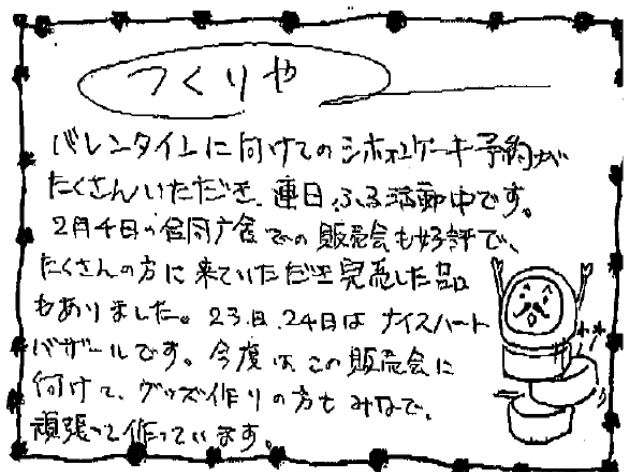 つくりや
バレンタインに向けてのシホンケーキ予約が
たくさんいただき、連日、ふる活動中です。
2月4日の合同庁舎での販売会も好評で、
たくさんの方に来ていただき完売した品
もありました。23日、24日はナイスハート
バザールです。今度はこの販売会に
向けて、グッズ作りの方もみなで、
頑張って作っています。